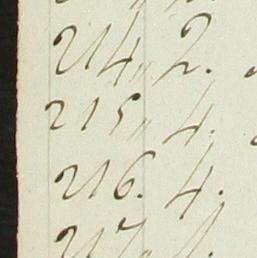 214,, 2.
215,, 4.
216. 4.